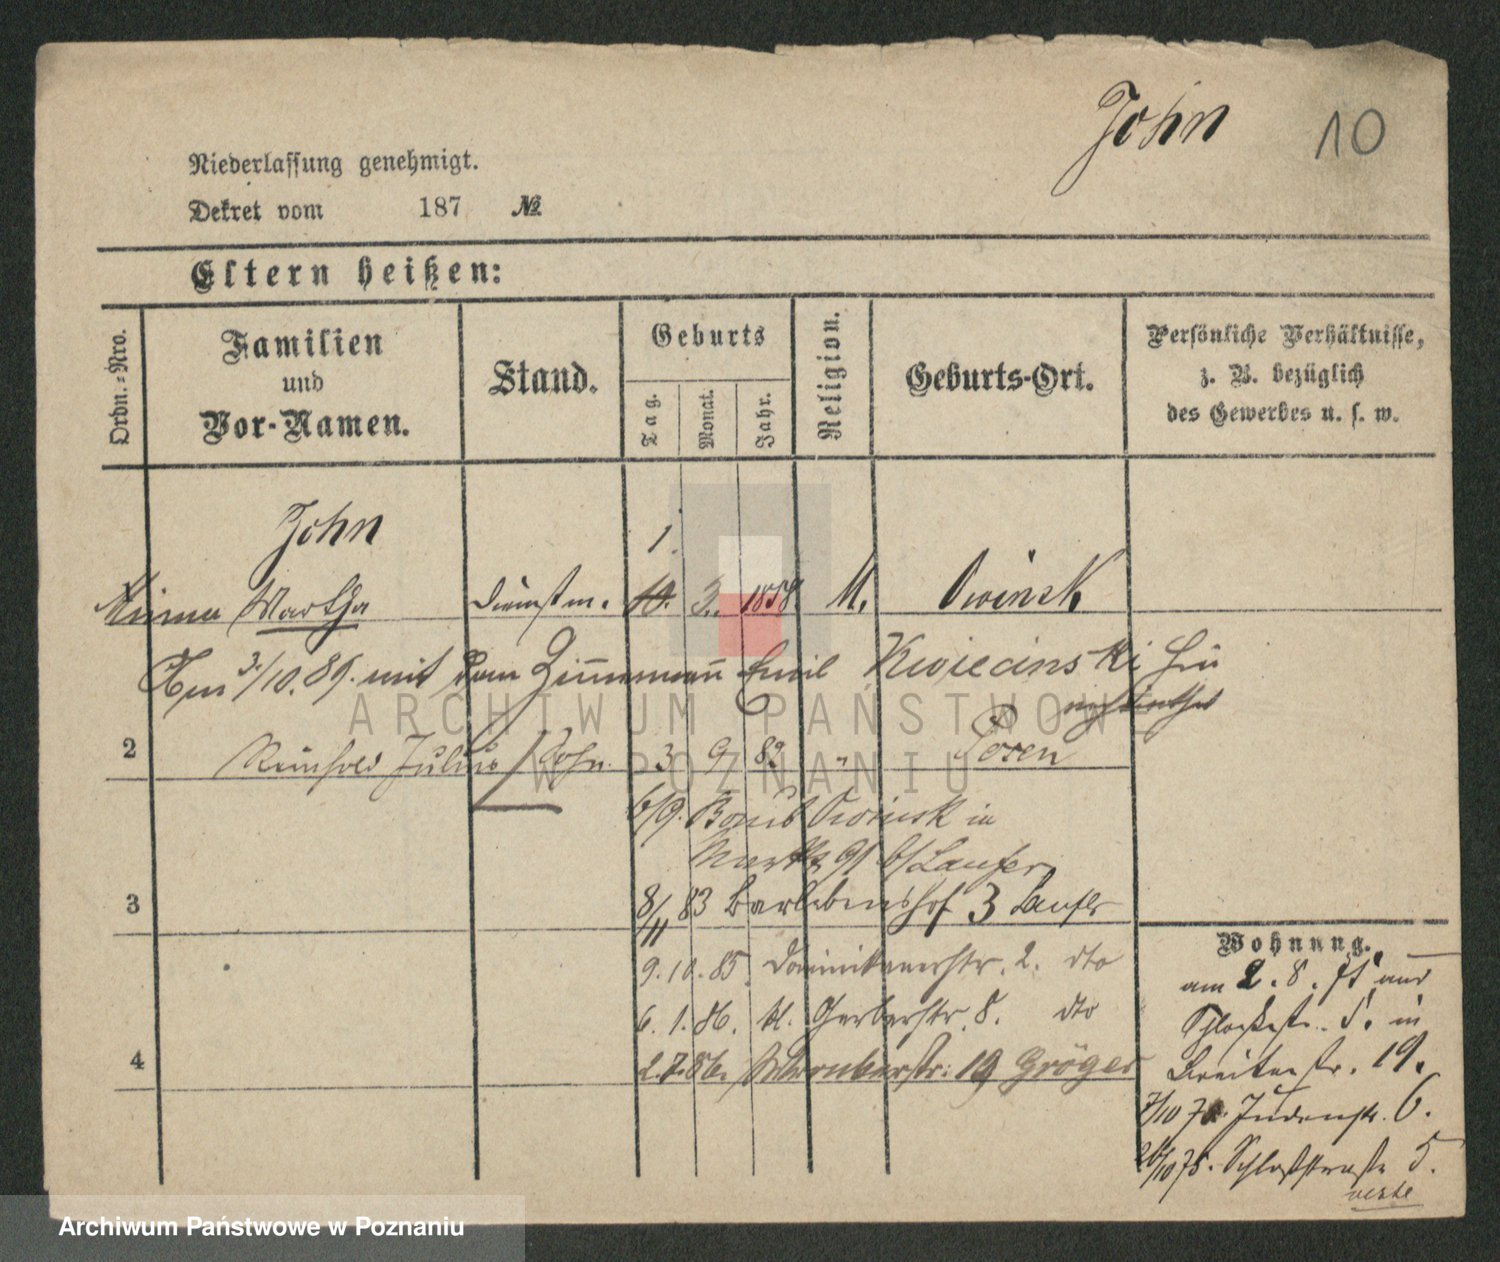 John 10
Niederlassung genehmigt.
Dekret vom 187 №
Eltern heißen:
Ordn.=Nro.
Familien
und
Vor-Namen.
Stand.
Geburts
Tag.
Monat.
Jahr.
Religion.
Geburts-Ort.
Persönliche Verhältnisse,
z. B. bezüglich
des Gewerbes u. s. w.
John
1.
Martha Dienstm. 10. 3. 1858 Owinsk
Am 3/10.89. mit dem Zimmermann Emil Kwiecinski
ARCHIWUM PAŃSTWOWE
W POZNANIU
2 Reinhold Julius / Sohn. 3 9 82 " Posen
6/9. Owinsk in
b/ Laufer
3 8/11 83 Barlebenshof 3 Laufer
9.10.85. Dominikanerstr. 2. dto
6.1.86. kl. Gerberstr. 8. dto
4 2.7.86. 19 Gröger
Wohnung.
am 2.8.75 aus
5. in
Breitestr. 19.
7/10 75. Judenstr. 6.
26/10 75. Schloßstraße 5.
verte
Archiwum Państwowe w Poznaniu